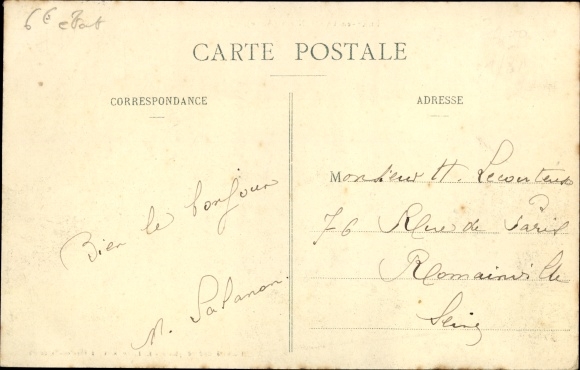 6€ état
CARTE POSTALE
CORRESPONDANCE
ADRESSE
Bien le bonjour
Monsieur H. Lecouteux
76 Rue de Paris
Romainville
Seine